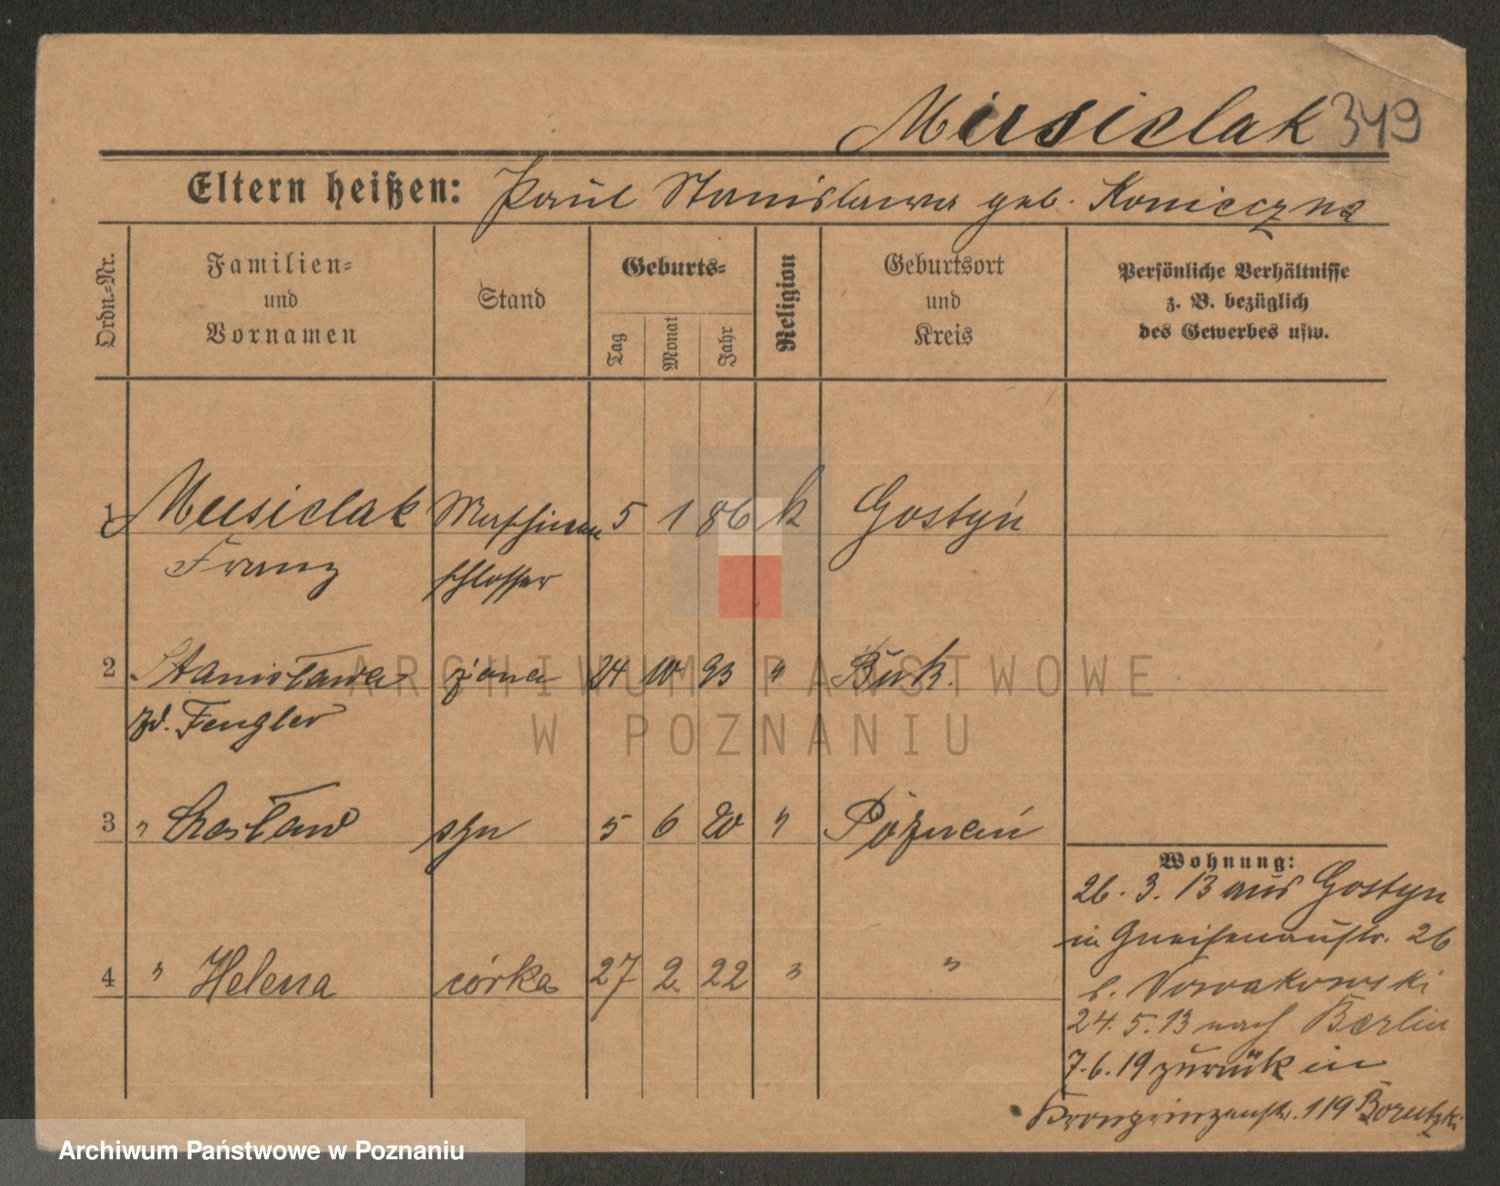 Musielak 349
Eltern heißen: Paul Stanisława geb. Konieczna
Ordn.=Nr.
Familien=
und
Vornamen
Stand
Geburts=
Tag
Monat
Jahr
Religion
Geburtsort
und
Kreis
Persönliche Verhältnisse
z. B. bezüglich
des Gewerbes usw.
1 Musielak Maschinen 5 1 86 k Gostyń
Franz schlosser
2 Stanisława żona 24 10 93 " Buk.
zd. Fengler
3 " Czesław syn 5 6 20 " Poznań
4 " Helena córka 27 2 22 " "
Wohnung:
26. 3. 13 aus Gostyn
in Gneisenaustr. 26
b. Nowakowski
24. 5. 13 nach Berlin
7. 6. 19 zurück in
Kronprinzenstr. 119 Borutzki
ARCHIWUM PAŃSTWOWE
W POZNANIU
Archiwum Państwowe w Poznaniu